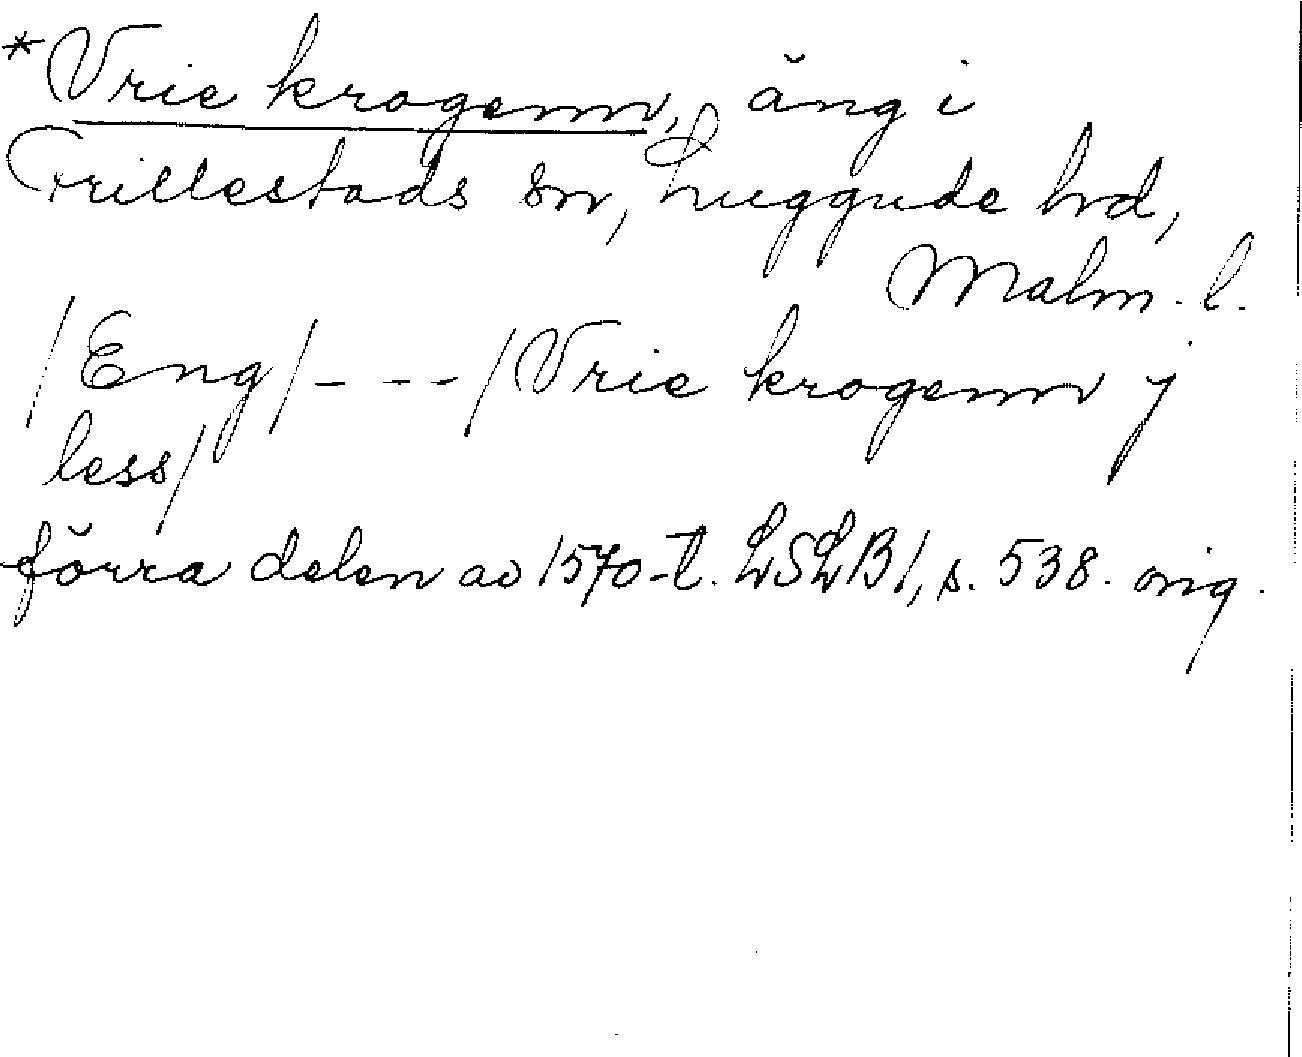 *Vrie krogenn, äng i
Frillestads sn, Luggude hd,
Malm. l.
/Eng/ - - - /Vrie krogenn j
less/
förra delen av 1570-t. LSLB1, s. 538. orig.